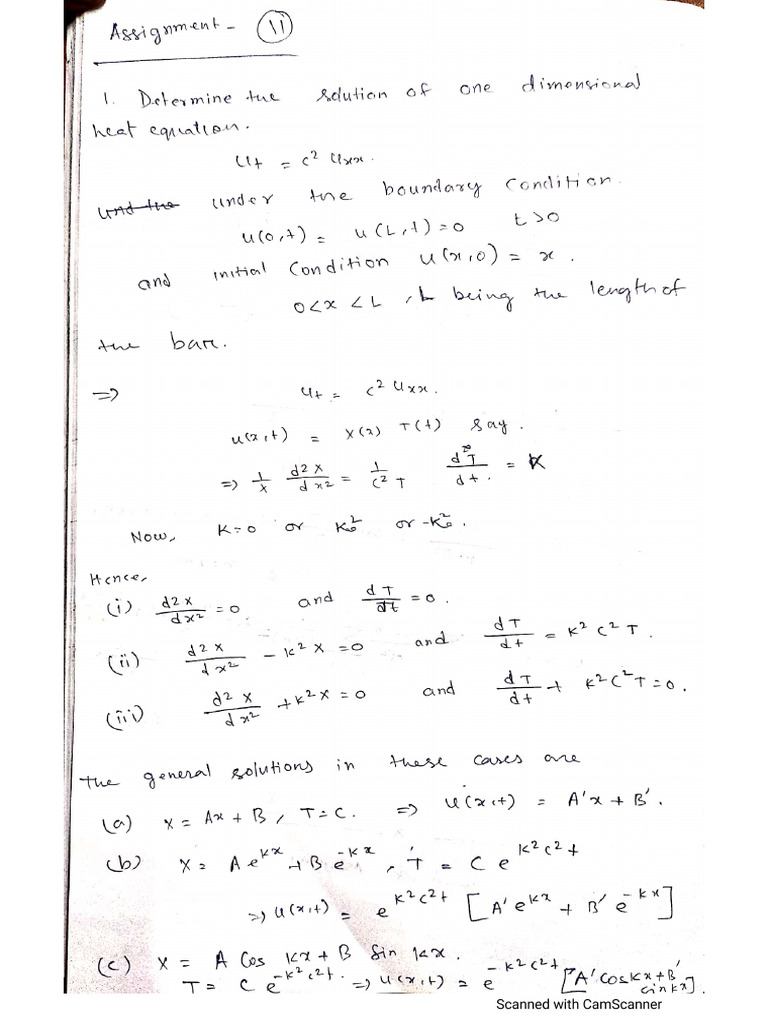 Assignment - 11
1. Determine the solution of one dimensional
heat equation.
u_t = c² u_xx.
under the boundary condition.
u(0,t) = u(L,t) = 0 t>0
and initial condition u(x,0) = x.
0<x<L, L being the length of
the bar.
⇒ u_t = c² u_xx.
u(x,t) = X(x) T(t) say.
⇒ 1/X d2X/dx2 = 1/c²T dT/dt. = K
Now, K=0 or K₀² or -K₀².
Hence,
(i) d2X/dx2 = 0 and dT/dt = 0.
(ii) d2X/dx2 - K²X = 0 and dT/dt = K²C²T.
(iii) d2X/dx2 + K²X = 0 and dT/dt + K²C²T = 0.
The general solutions in these cases are
(a) X = Ax + B, T = C. ⇒ u(x,t) = A'x + B'.
(b) X = A e^{Kx} + B e^{-Kx}, T = C e^{K²C²t}
⇒ u(x,t) = e^{K²C²t} [A' e^{Kx} + B' e^{-Kx}]
(c) X = A Cos Kx + B Sin Kx.
T = C e^{-K²C²t}. ⇒ u(x,t) = e^{-K²C²t} [A' cos Kx + B' sin Kx].
Scanned with CamScanner